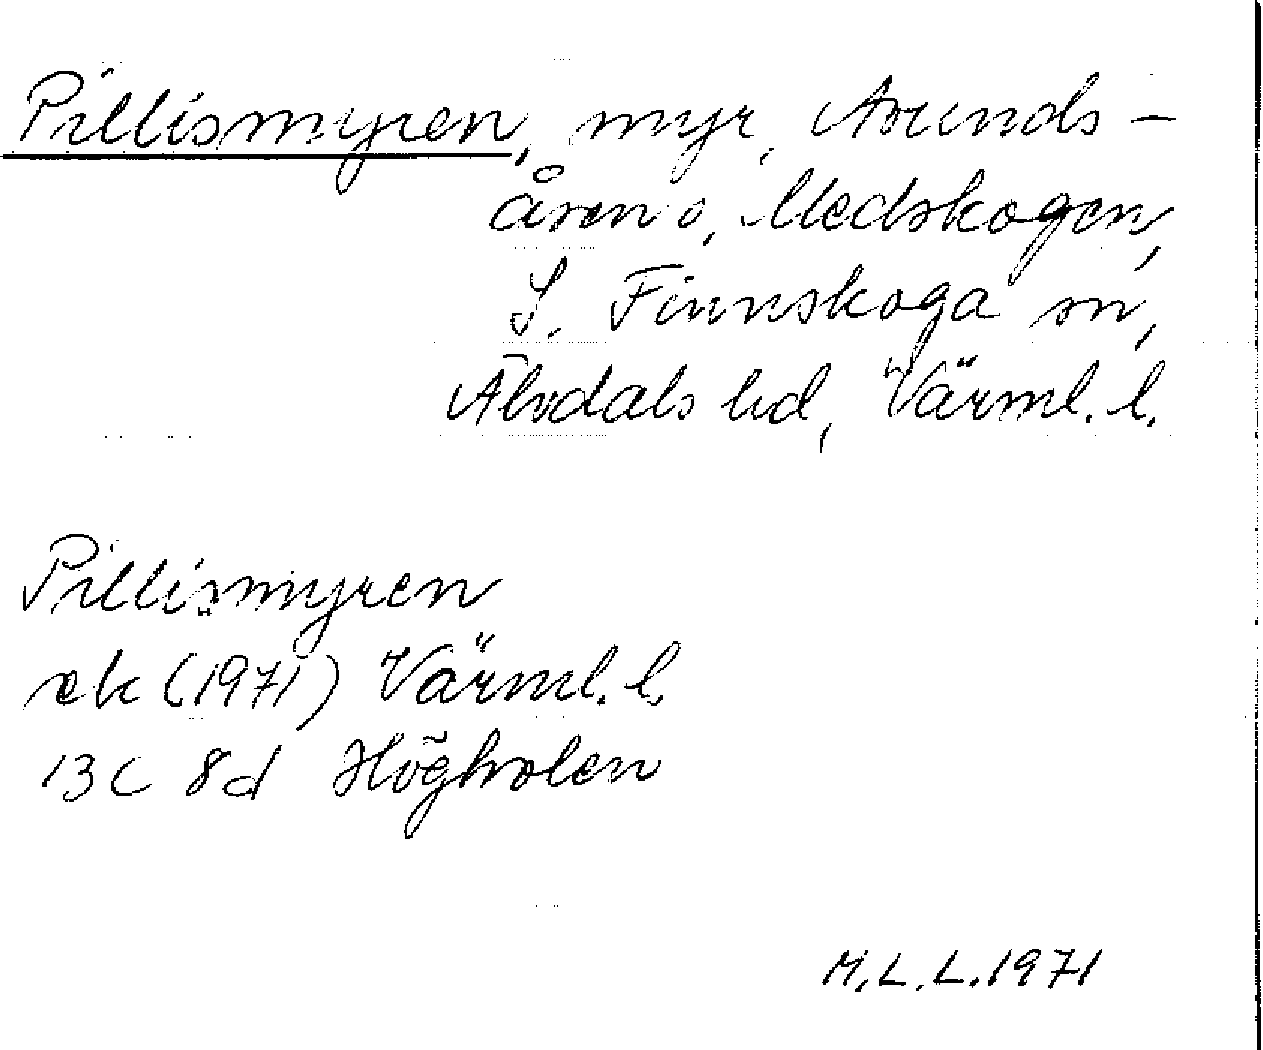 Pillismyren, myr, Asunds-
åsen o, Medskogen,
S. Finnskoga sn,
Älvdals hd, Värml. l.
Pillismyren
ek (1971) Värml. l.
13C 8d Högholen
M.L.L. 1971